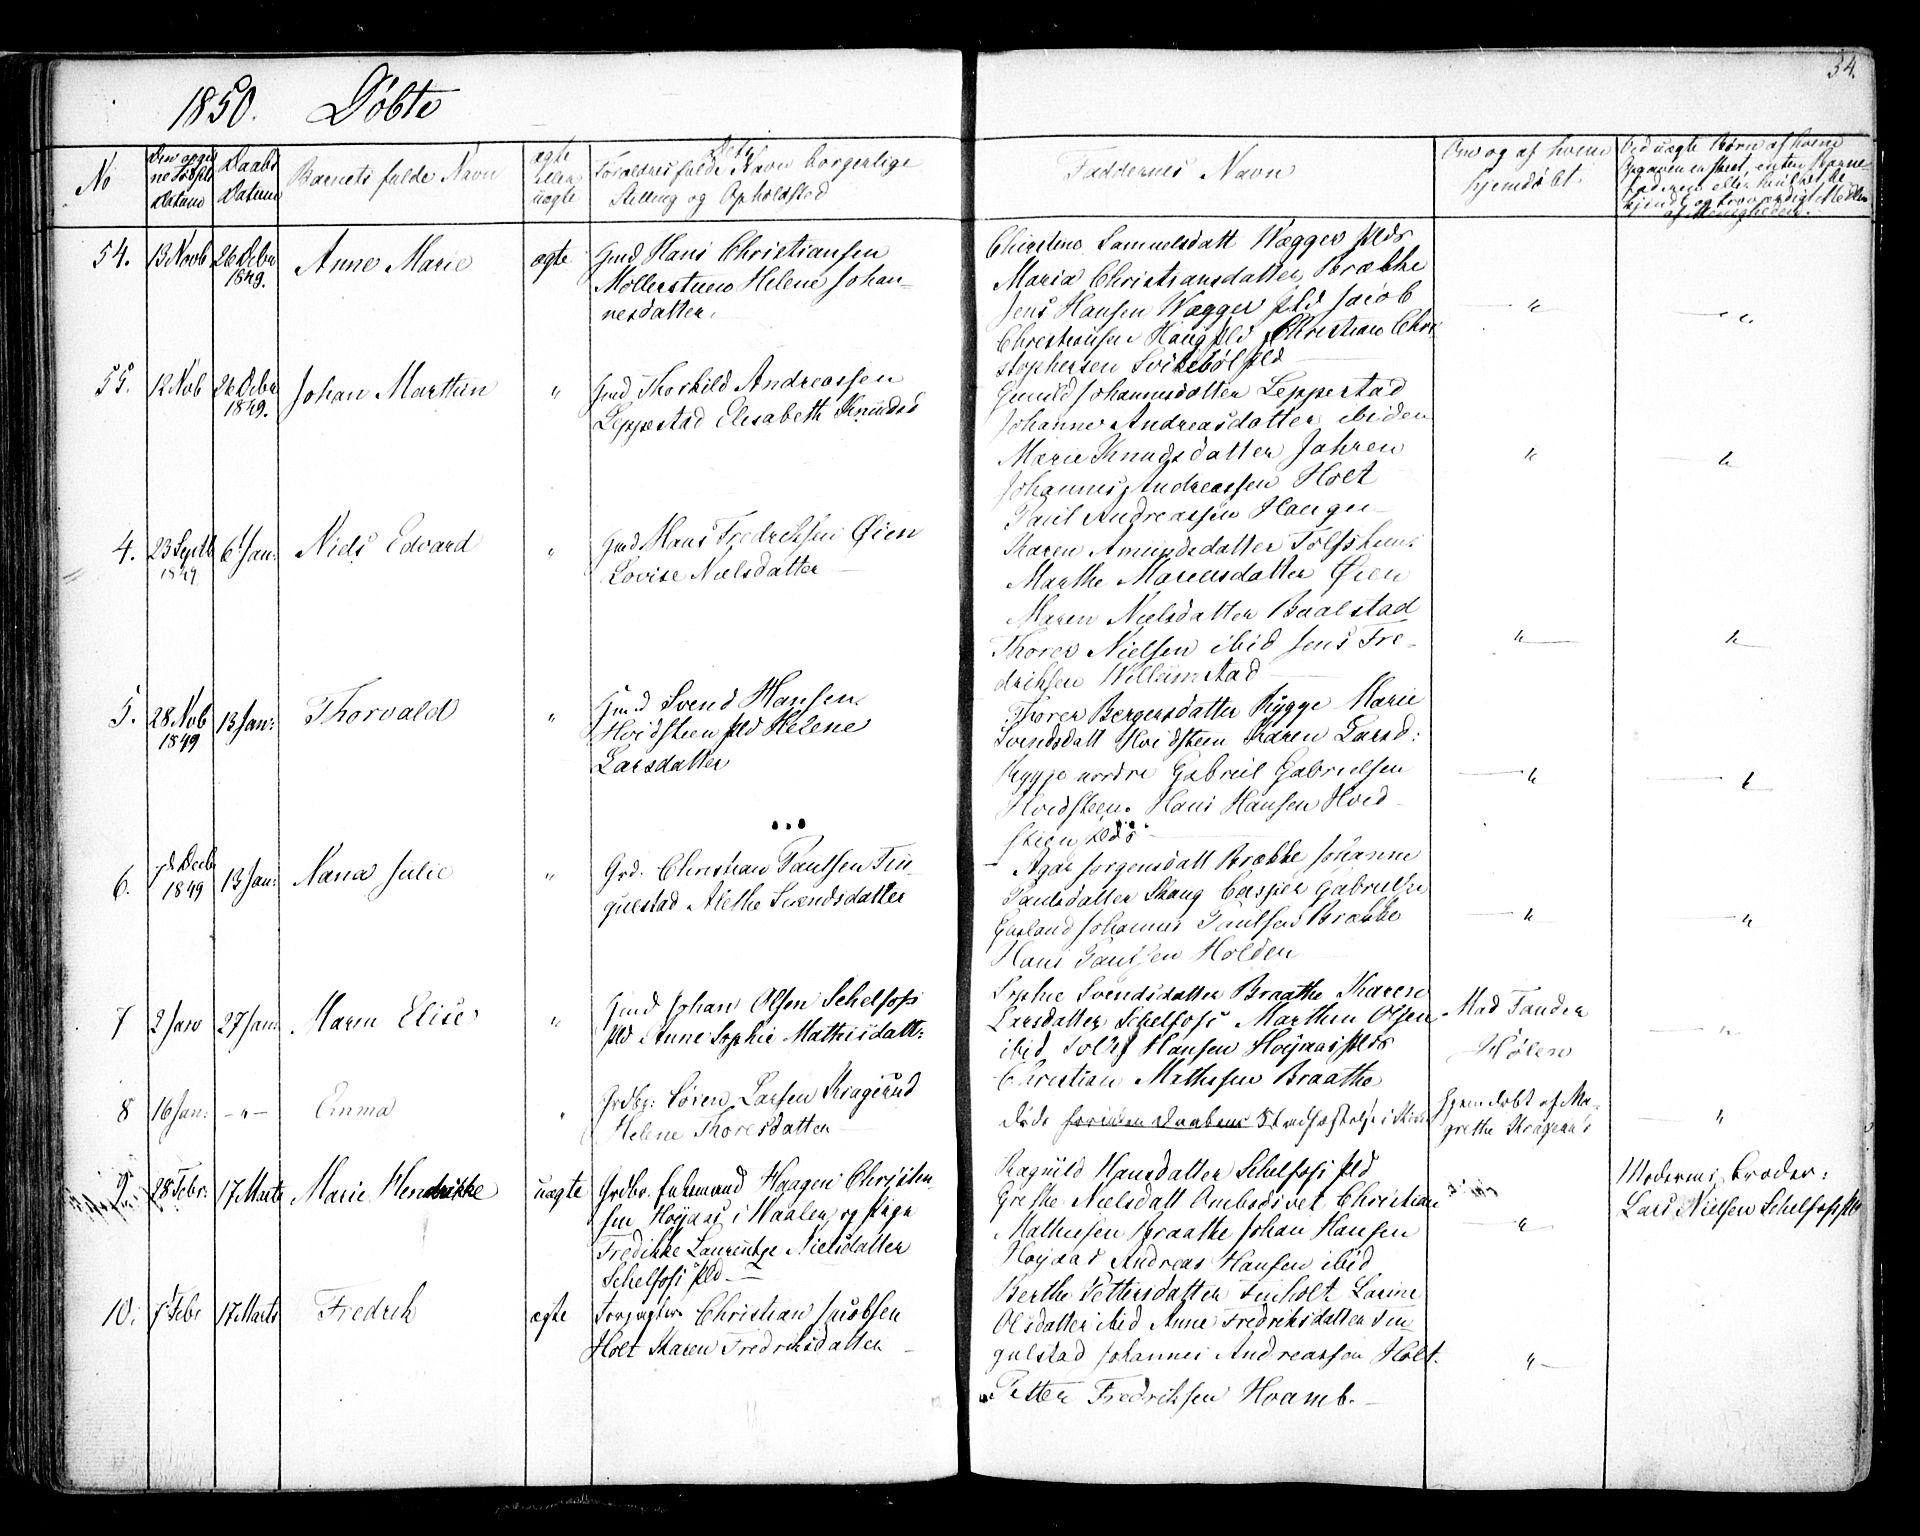 54.
1850. Døbte
No
Den opgivne Fødsels Datum
Daabs Datum
Barnets fulde Navn
ægte eller uægte
Forældres fulde Navn borgerlige
Stilling og Opholdsted
Faddernes Navn
Om og af hvem
hjemdøbt.
Ved uægte Børn af hvem
54. 13 Novb 26 Decbr 1849. Anne Marie ægte
Gmd Hans Christiansen
Møllerstuen Helene Johan-
nesdatter.
Christine Samuelsdatt Vægger plds
Maria Christiansdatter Brække
Jens Hansen Vægger pld Jacob
Christiansen Haug pld Christian Chri
stophersen Svikebøl pld
55. 12 Nob 26 Decbr 1849. Johan Marthin "
Gmd Thorkild Andreassen
Leppestad Elisabeth Knudsd
Gunild Johannesdatter Leppestad
Johanne Andreasdatter ibiden
Marie Knudsdatter Jahren
Johannes Andreassen Holt
Paul Andreassen Haugen
4. 23 Septb 1849 6 Jan: Niels Edvard "
Gmd Hans Fredriksen Øien
Lovise Nielsdatter
Karen Amundsdatter
Marthe Mariusdatter Øien
Maren Nielsdatter Baalstad
Thorer Nielsen ibid Jens Fre-
driksen Willumstad
5. 28 Nob 1849 13 Jan: Thorvald "
Gmd Svend Hansen
Hvidsteen pld Helene
Larsdatter
Thoren Bergersdatter Rygge Marie
Svendsdatt Hvidsteen Karen Larsd:
Rygge nordre Gabriel Gabrielsen
Hvidsteen. Hans Hansen Hvid-
steen plds
6. 7d Decb 1849 13 Jan: Nana Julie "
Grd. Christian Paulsen Tin-
gulstad Alethe Svendsdatter
Agar Jørgensdatt Brække Johanne
Paulsdatter Skaug Casper Gabrielsen
Garland Johannes Paulsen Brække
Hans Paulsen Holden
7 2 Jan 27 Jan: Maren Elise "
Gmd Johan Olsen Schelfoss
pld Anne Sophie Mathisdatt:
Sophie Svendsdatter Braathe Karen
Larsdatter Schelfoss Marthin Olsen
ibid Hansen Høyaas plds
Christian Mathisen Braathe
Mad Tandér
Hølen
8 16 Jan: -"- Emma "
Grdbr: Søren Larsen Kragerud
Helene Thoresdatter
døde førinden Daabens Stadfæstelse i Kirk
Hjemdøbt af Ma-
grethe
9. 28 Febr: 17 Marts Marie Hendrikke uægte
Grdbr. Enkemand Haagen Christen-
sen Høyaas i Vaaler og Pige
Fredikke Laurentze Nielsdatter
Schelfoss pld
Ragnild Hansdatter Schelfoss pld
Grethe Nielsdatt Christian
Mathiesen Braathe Johan Hansen
Høyaas Andreas Hansen ibid
Moderens broder:
Lars Nielsen Schelfoss pld
10. 1 Febr 17 Marts Fredrik ægte
Christian Jacobsen
Holt Karen Fredriksdatter
Berthe Pettersdatter Finholt Larine
Olsdatter ibid Anne Fredriksdatter Tin
gulstad Johannes Andreassen Holt.
Petter Fredriksen Hvamb.